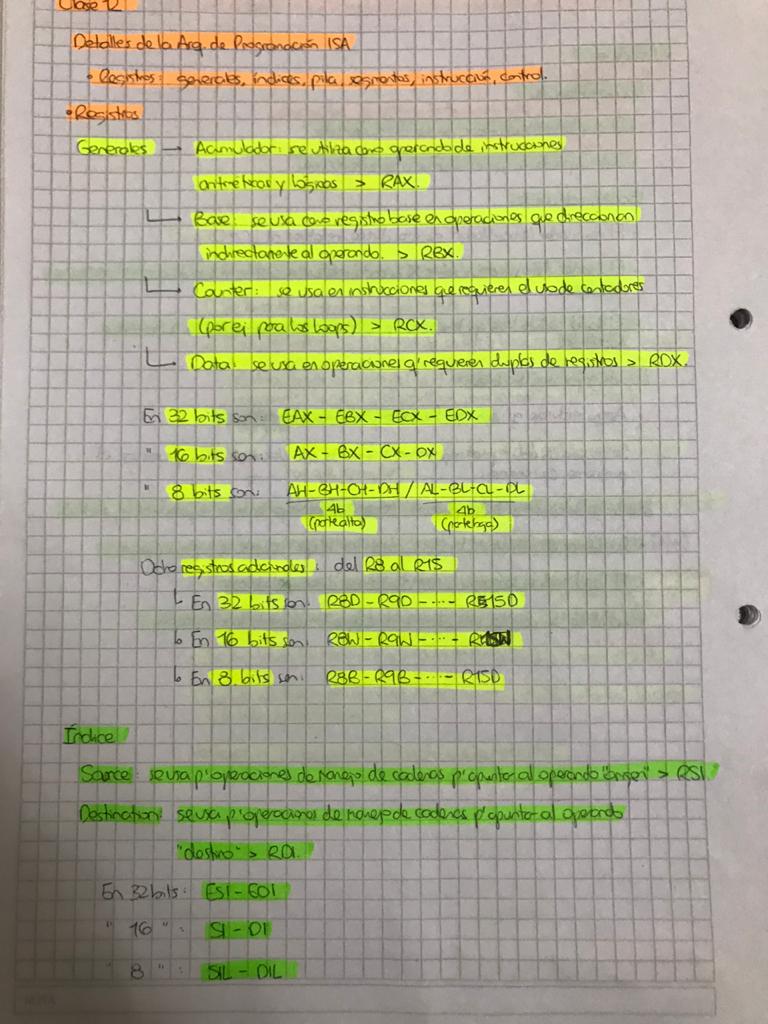 Clase 12
Detalles de la Arq. de Programación ISA
• Registros: generales, índices, pila, segmentos, instrucción, control.
• Registros
Generales → Acumulador: se utiliza como operando de instrucciones
aritméticas y lógicas > RAX.
→ Base: se usa como registro base en operaciones que direccionan
indirectamente al operando. > RBX.
→ Counter: se usa en instrucciones que requieren el uso de contadores
(por ej para los loops) > RCX.
→ Data: se usa en operaciones q' requieren duplas de registros > RDX.
En 32 bits son: EAX - EBX - ECX - EDX
" 16 bits son: AX - BX - CX - DX
" 8 bits son: AH-BH-CH-DH / AL-BL-CL-DL
4b 4b
(parte alta) (parte baja)
Ocho registros adicionales: del R8 al R15
↳ En 32 bits son: R8D - R9D - ... - R15D
↳ En 16 bits son: R8W - R9W - ... -
↳ En 8 bits son: R8B - R9B - ... - R15D
Índice
Source: se usa p' operaciones de manejo de cadenas p' apuntar al operando "origen" > RSI
Destination: se usa p' operaciones de manejo de cadenas p' apuntar al operando
"destino" > RDI.
En 32 bits: ESI - EDI
" 16 " : SI - DI
" 8 " : SIL - DIL